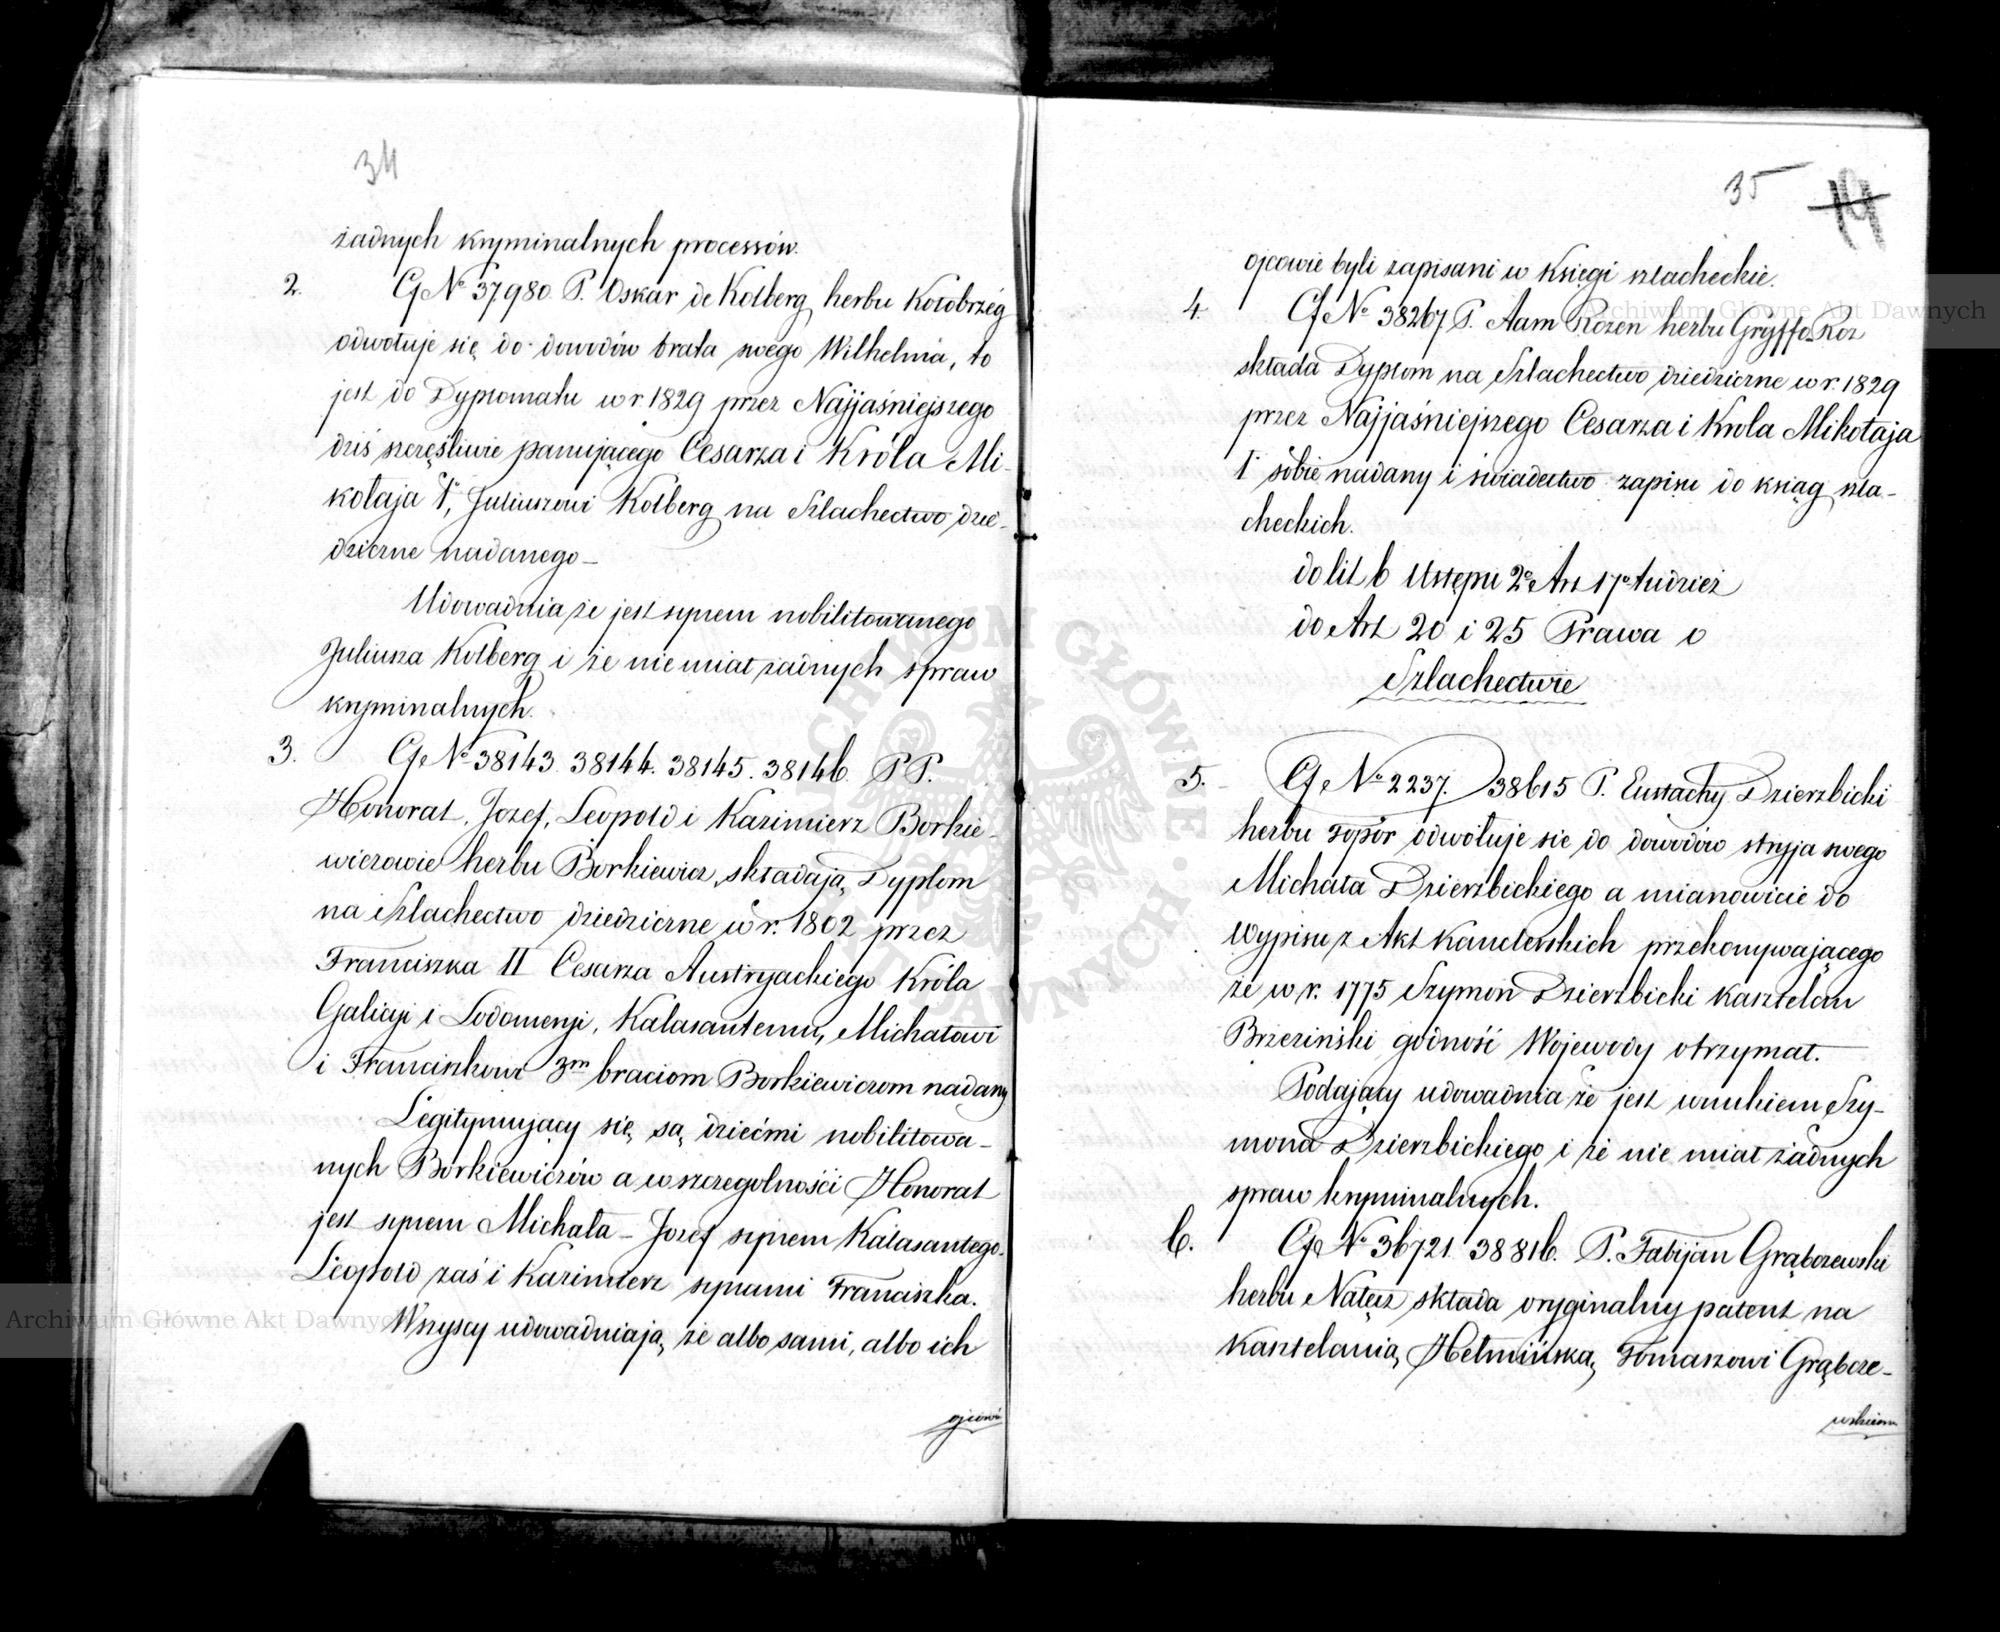 34
żadnych kryminalnych processów.
2. Cf. No 37,980. P. Oskar de Kolberg herbu Kołobrzeg
odwołuje się do dowodów brata swego Wilhelma, to
jest do Dyplomatu w r. 1829 przez Najjaśniejszego
dziś szczęśliwie panującego Cesarza i Króla Mi-
kołaja I, Juliuszowi Kolberg na Szlachectwo dzie-
dziczne nadanego_
Udowadnia że jest synem nobilitowanego
Juliusza Kolberg i że nie miał żadnych spraw
kryminalnych.
3. Cf. No 38143. 38144. 38145. 38146. PP.
Honorat, Jozef, Leopold i Kazimierz Borkie-
wiczowie herbu Borkiewicz, składają Dyplom
na Szlachectwo dziedziczne w r. 1802 przez
Franciszka II Cesarza Austryackiego Króla
Galicyi i Lodomeryi, Kalasantemu, Michałowi
i Franciszkowi 3m braciom Borkiewiczom nadany
Legitymujący się są dziećmi nobilitowa-
nych Borkiewiczów a w szczegolności Honorat
jest synem Michała_ Jozef synem Kalasantego_
Leopold zaś i Kazimierz synami Franciszka.
Wszyscy udowadniają że albo sami, albo ich
ojcowie
35
14
ojcowie byli zapisani w Księgi szlacheckie.
4. Cf. No 38267 P. Aam Rozen herbu Gryffo_Roz
składa Dyplom na Szlachectwo dziedziczne w r. 1829
przez Najjaśniejszego Cesarza i Krola Mikołaja
I sobie nadany i świadectwo zapisu do ksiąg szla-
checkich.
do lit b Ustępu 2o Art 17o tudzież
do Art 20 i 25 Prawa o
Szlachectwie
5. Cf. No 2237. 38615 P. Eustachy Dzierzbicki
herbu Topór odwołuje sie do dowodów stryja swego
Michała Dzierzbickiego a mianowicie do
Wypisu z Akt Kanclerskich przekonywającego
że w r. 1775 Szymon Dzierzbicki Kasztelan
Brzeziński godność Wojewody otrzymał.
Podający udowadnia że jest wnukiem Szy-
mona Dzierzbickiego i że nie miał żadnych
spraw kryminalnych.
6. Cf. No 36721. 38816. P. Fabijan Grąbczewski
herbu Nałęcz składa oryginalny patent na
Kasztelanią Hełmińską Tomaszowi Grąbcze-
wskiem
Archiwum Główne Akt Dawnych
Archiwum Główne Akt Dawnych
ARCHIWUM GŁÓWNE AKT DAWNYCH